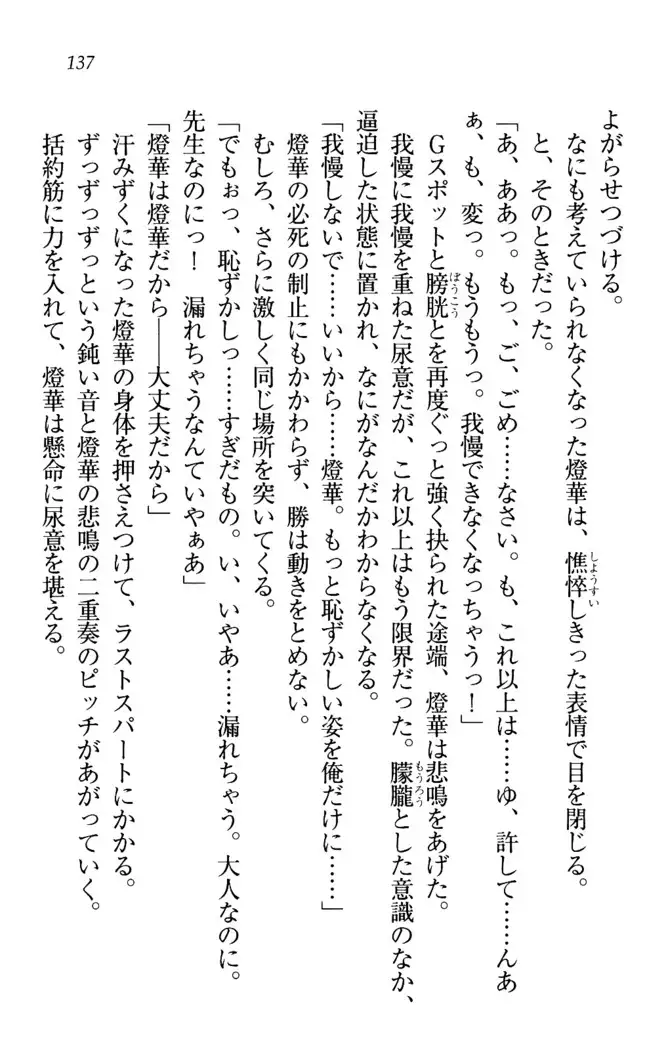 137
よがらせつづける。
なにも考えていられなくなった燈華は、憔悴しきった表情で目を閉じる。
と、そのときだった。
「あ、ああっ。もっ、ご、ごめ……なさい。も、これ以上は……ゆ、許して……んあ
ぁ、も、変っ。もうもうっ。我慢できなくなっちゃうっ！」
Ｇスポットと膀胱とを再度ぐっと強く抉られた途端、燈華は悲鳴をあげた。
我慢に我慢を重ねた尿意だが、これ以上はもう限界だった。朦朧とした意識のなか、
逼迫した状態に置かれ、なにがなんだかわからなくなる。
「我慢しないで……いいから……燈華。もっと恥ずかしい姿を俺だけに……」
燈華の必死の制止にもかかわらず、勝は動きをとめない。
むしろ、さらに激しく同じ場所を突いてくる。
「でもぉっ、恥ずかしっ……すぎだもの。い、いやあ……漏れちゃう。大人なのに。
先生なのにっ！　漏れちゃうなんていやぁあ」
「燈華は燈華だから――大丈夫だから」
汗みずくになった燈華の身体を押さえつけて、ラストスパートにかかる。
ずっずっずっという鈍い音と燈華の悲鳴の二重奏のピッチがあがっていく。
括約筋に力を入れて、燈華は懸命に尿意を堪える。